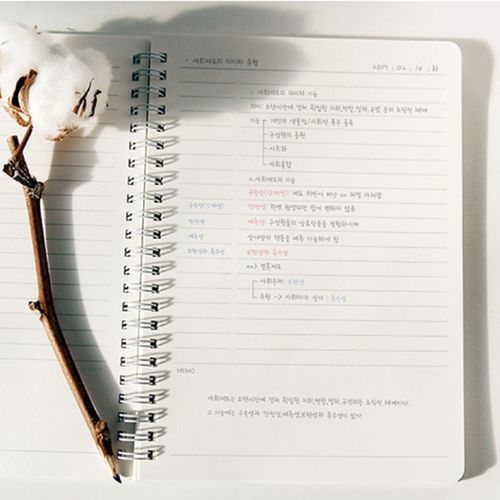 · 사회제도의 의미와 유형
2017. 02. 14. 화
1. 사회제도의 의미와 기능
의미: 오랜시간에 걸쳐 확립된 지위,역할,절차,규범 등의 조직된 체계
기능 개인의 생물적/사회적 욕구 충족
구성원의 충원
사회화
사회통합
2. 사회제도의 기능
구속성(강제성): 제도 위반시 비난 or 처벌 가해짐
구속성(강제성)
안정성: 한번 형성되면 쉽게 변하지 않음
안정성
예측성: 구성원들의 상호작용을 정형화시켜
예측성
상대방의 행동을 예측 가능하게 함
보편성과 특수성
보편성과 특수성
ex> 결혼제도
사회존재: 보편성
유형 -> 사회마다 상이: 특수성
MEMO
사회제도는 오랜시간에 걸쳐 확립된 지위,역할,절차,규범등을 조직한 체계이다.
그 기능에는 구속성과 안정성,예측성,보편성과 특수성이 있다.